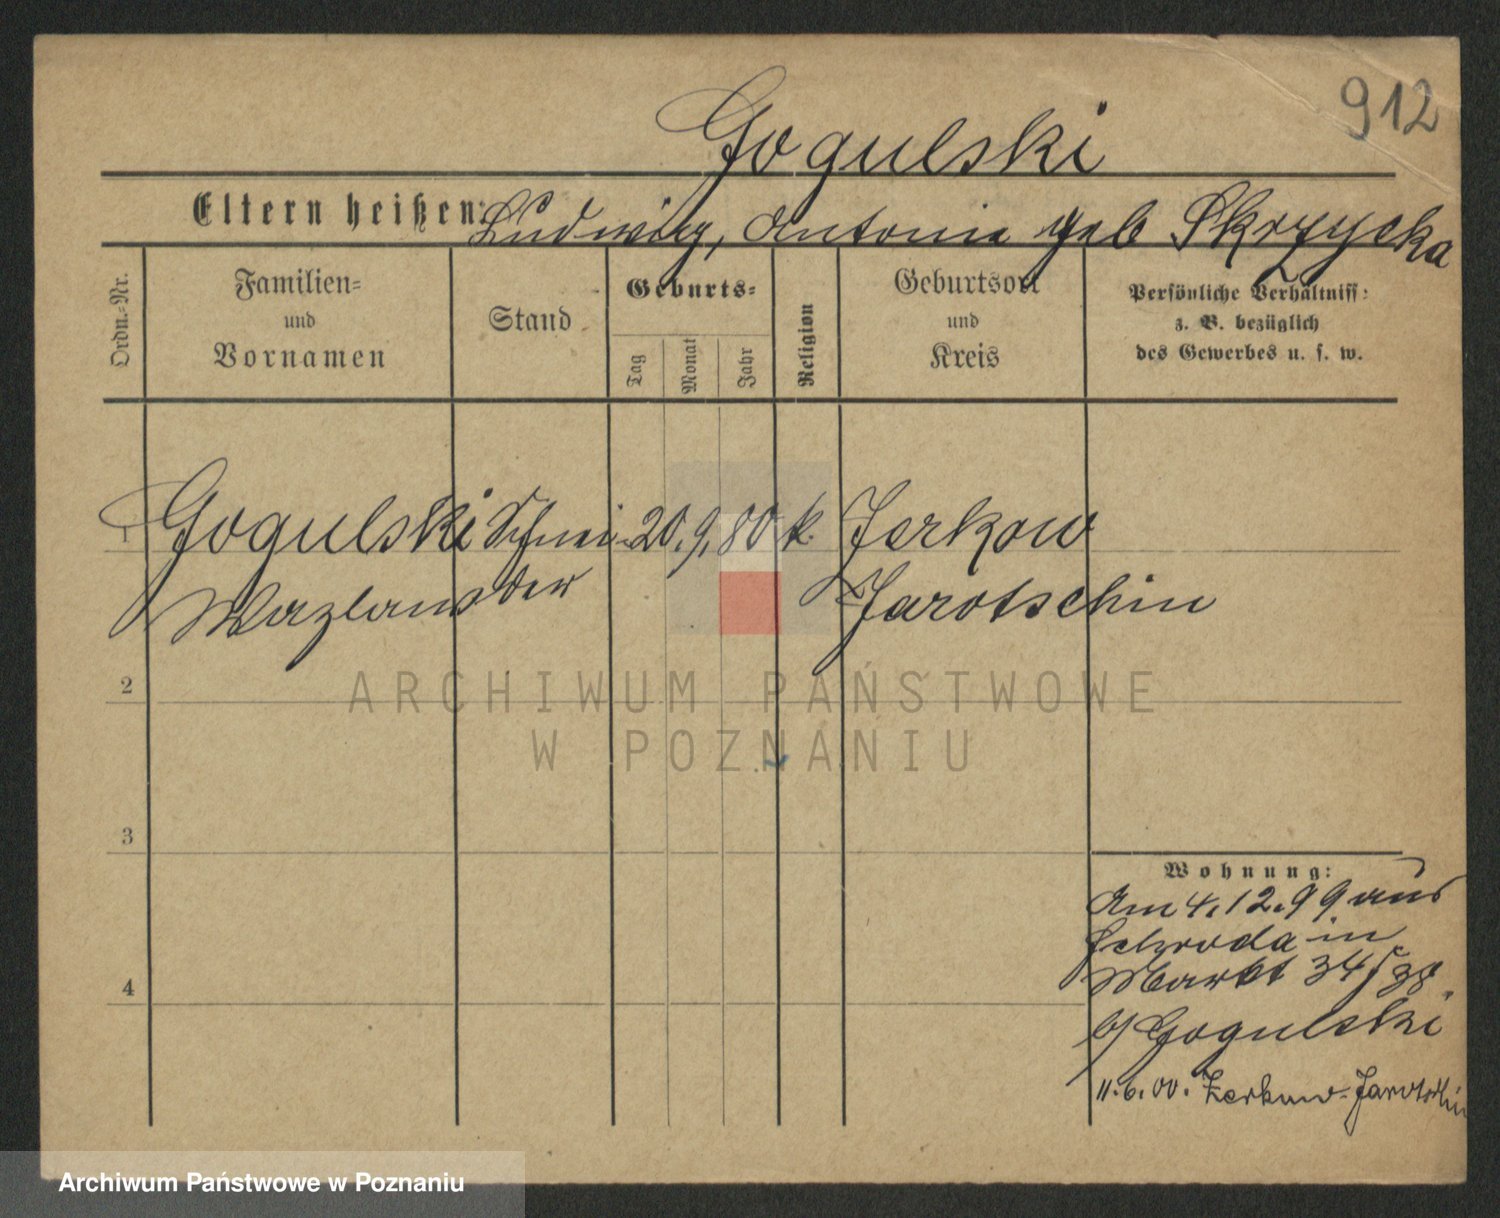 912
Gogulski
Eltern heißen: Ludwig, Antonie geb Skrzycka
Ordn.-Nr.
Familien-
und
Vornamen
Stand
Geburts-
Tag
Monat
Jahr
Religion
Geburtsort
und
Kreis
Persönliche Verhältniss:
z. B. bezüglich
des Gewerbes u. s. w.
1 Gogulski Schnei- 20. 9. 80 k. Zerkow
Wazlaus der Jarotschin
2
3
4
ARCHIWUM PAŃSTWOWE
W POZNANIU
Wohnung:
Am 4.12.99 aus
in
Markt 34/38.
b/ Gogulski
11.6.00. Zerkow-Jarotschin
Archiwum Państwowe w Poznaniu